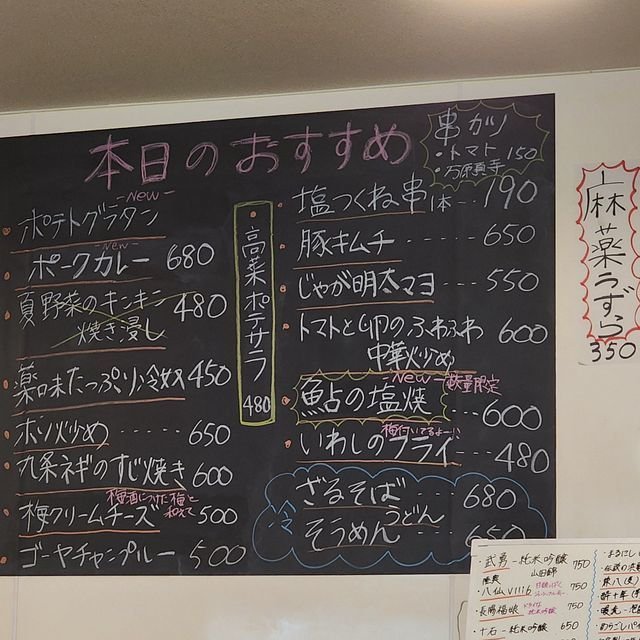 本日のおすすめ
-New-
ポテトグラタン
-New-
ポークカレー 680
夏野菜のキンキン 480
焼き浸し
薬味たっぷり冷奴 450
ホルソ炒め ····· 650
九条ネギのすじ焼き 600
梅酒につけた梅と
和えて
梅クリームチーズ 500
ゴーヤチャンプルー 500
高菜ポテサラ
480
串カツ
・トマト 150
・万願寺
塩つくね串1本·· 190
豚キムチ ····· 650
じゃが明太マヨ ···· 550
トマトと卵のふわふわ 600
中華炒め
New- 数量限定
鮎の塩焼 ··· 600
梅付いてるよー!!
いわしのフライ ·· 480
冷
ざるそば ··· 680
うどん
そうめん ··· 650
麻薬うずら
350
・武勇-純米吟醸 750
山田錦
陸奥
・八仙 V1116 750
・長陽福娘 750
純米吟醸
・十石-純米吟醸 650
・まるにし